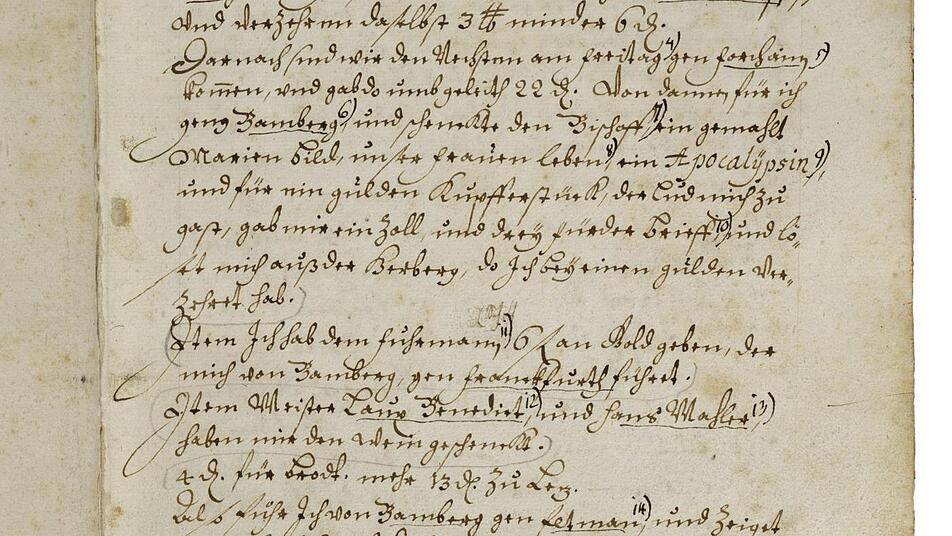 und verzehrnn daselbst 3 ℔ minder 6 ₰.
Darnach sind wir den Nechsten am freitag 4) gen forchaim 5)
kom̅en, und gab do umb geleith 22 ₰. Von dannen für ich
geng Bamberg 6), und schenckte den Bischoff 7) ein gemahlt
Marien bild, unser frauen leben 8), ein Apocalÿpsin 9),
und für ein gülden Kupfferstück, der lud mich zu
gast, gab mir ein Zoll, und dreÿ fürder brieff 10), und lö-
st mich auß der Herberg, do Ich beÿ einen gülden ver-
zehret hab.
Item Ich hab dem fuhrmann 11) 6 fl an Gold geben, der
mich von Bamberg, gen franckfurth führet.
Item Meister Laux Benedict 12), und Hans Mahler 13)
haben mir den Wein geschenckt.
4 ₰. für brodt. mehr 13 ₰. zu Lez.
Also fuhr Ich von Bamberg gen Eltman 14), und zeiget